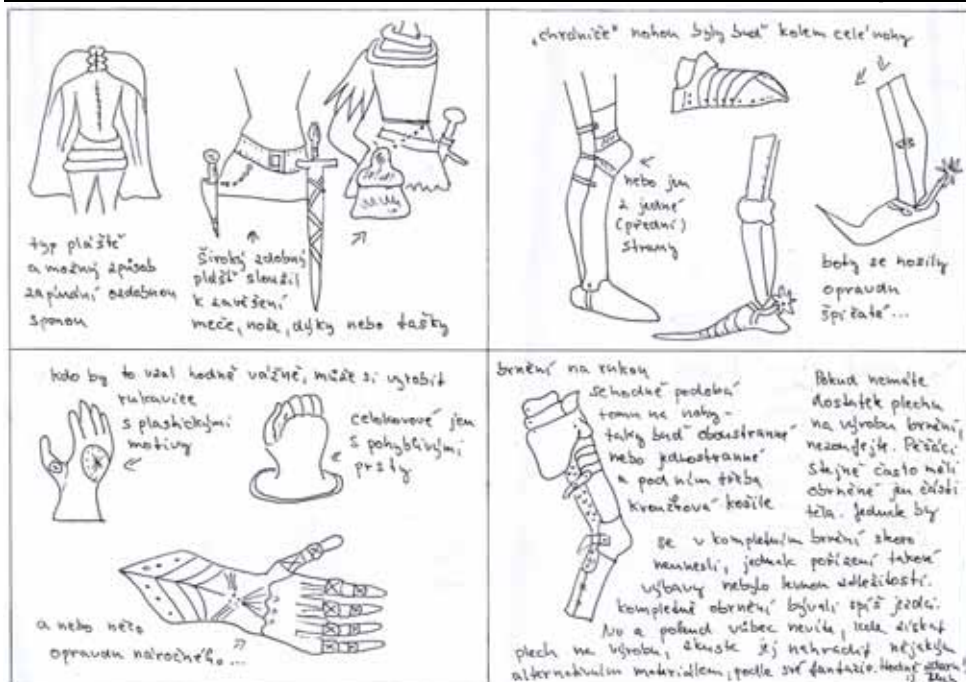 typ pláště
a možný způsob
zapínání ozdobnou
sponou
široký zdobný
plášť sloužil
k zavěšení
meče, nože, dýky nebo tašky
„chrániče" nohou byly buď kolem celé nohy
nebo jen
z jedné
(přední)
strany
boty se nosily
opravdu
špičaté...
kdo by to vzal hodně vážně, může si vyrobit
rukavice
s plastickými
motivy
celokovové jen
s pohyblivými
prsty
a nebo něco
opravdu náročného...
brnění na rukou
se hodně podobá
tomu na nohy -
taky buď oboustranné
nebo jednostranné
a pod ním třeba
kroužková košile
Pokud nemáte
dostatek plechu
na výrobu brnění,
nezoufejte. Pěšáci
stejně často měli
obrněné jen části
těla. Jednak by
se v kompletním brnění skoro
neunesli, jednak pořízení takové
výbavy nebylo levnou záležitostí.
kompletně obrnění bývali spíš jezdci.
No a pokud vůbec nevíte, kde získat
plech na výrobu, zkuste jej nahradit nějakým
alternativním materiálem, podle své fantazie. Hodně zdaru!